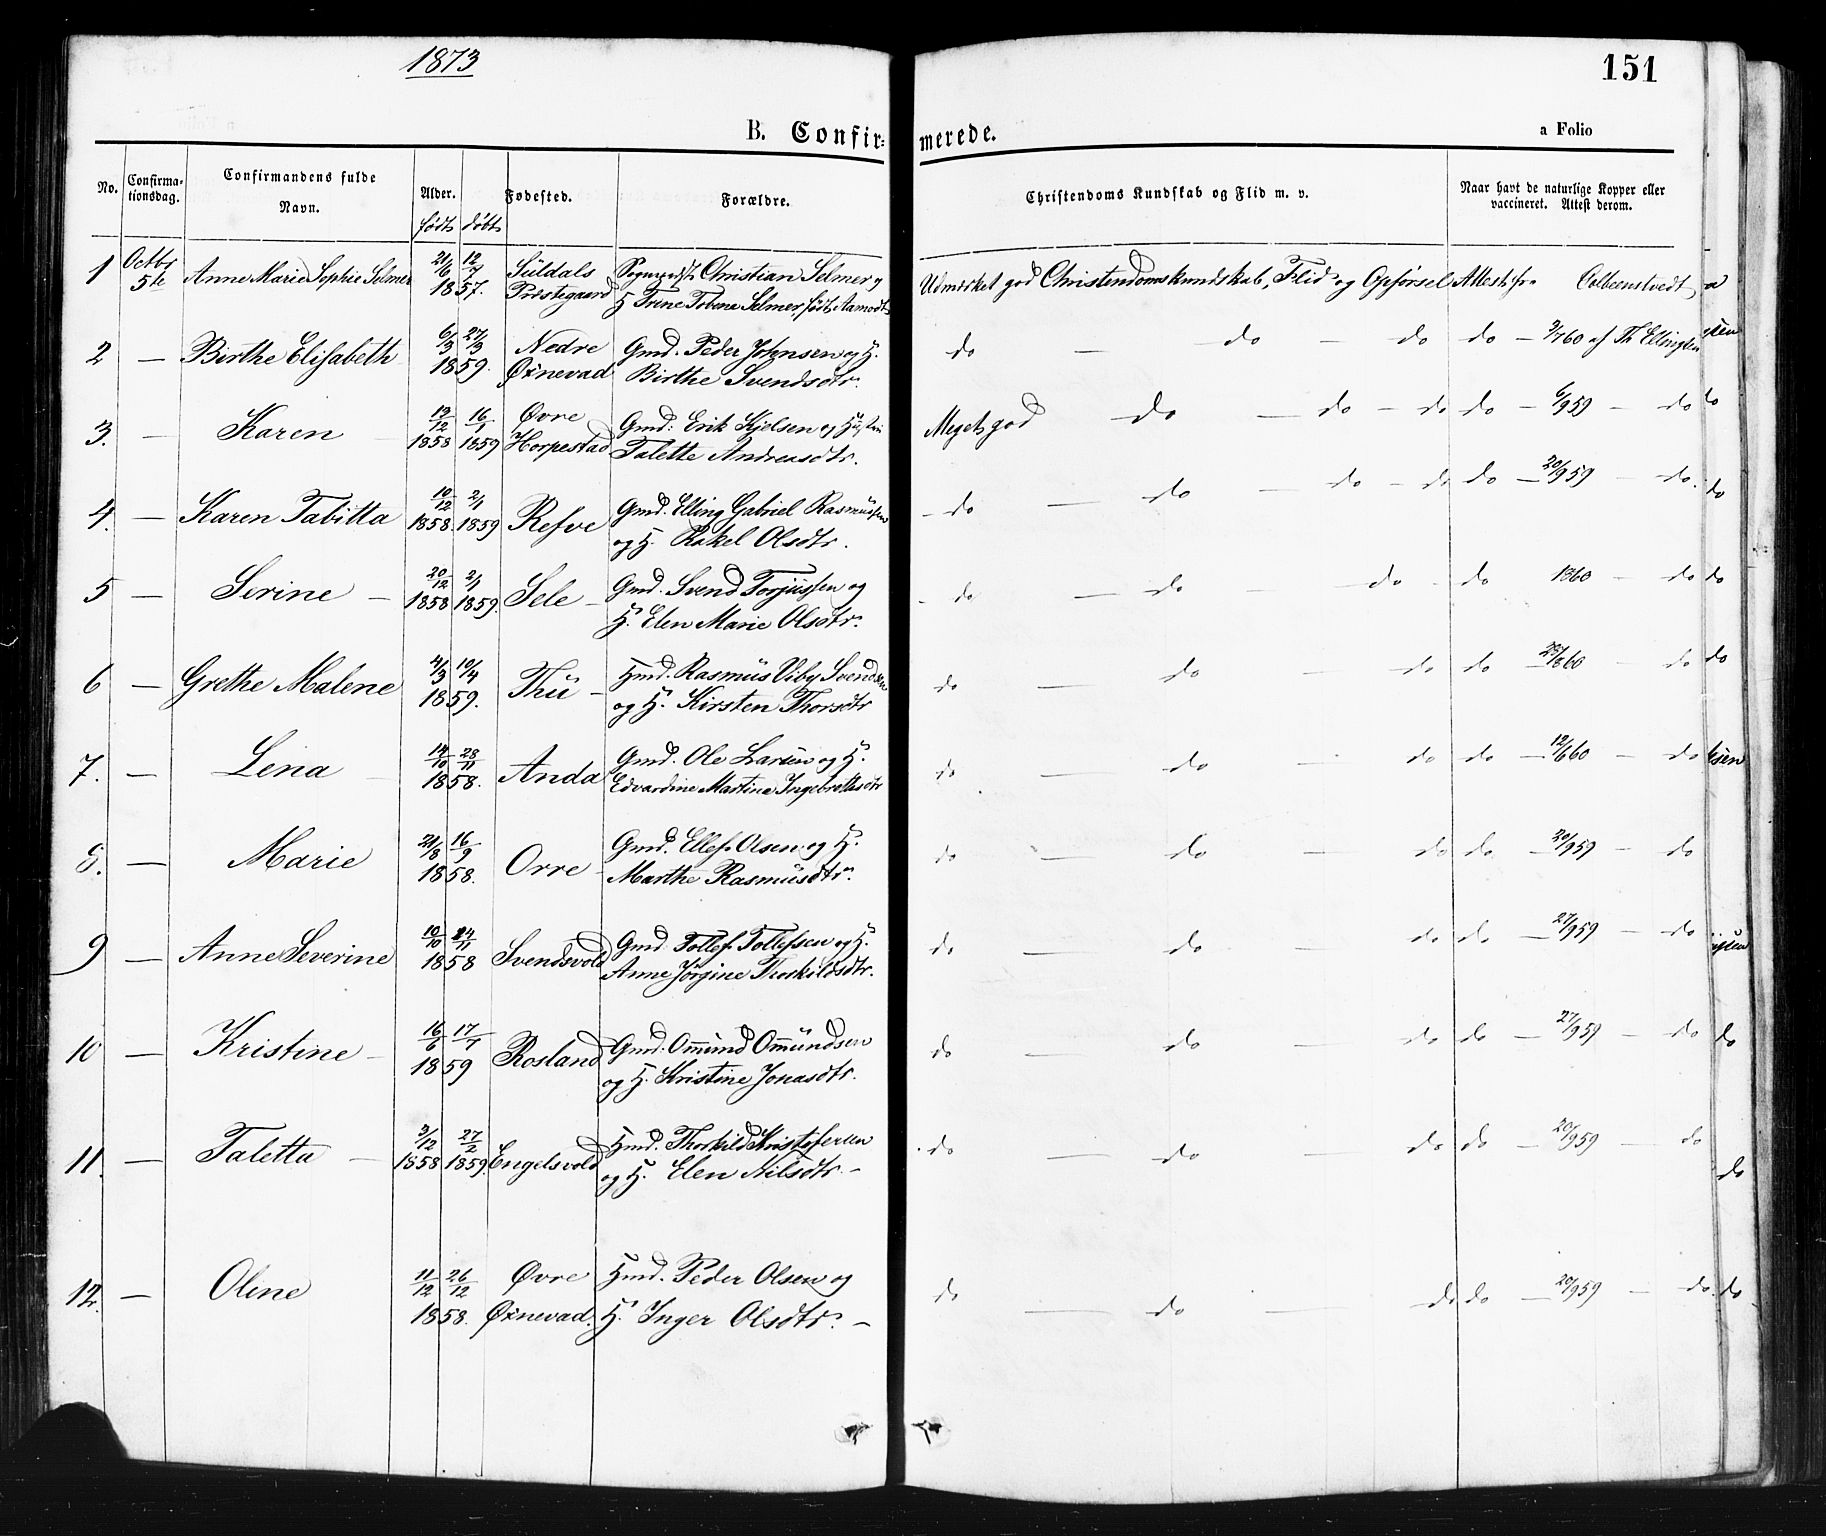 1873
151
B. Confir=
merede.
a Folio
No.
Confirma-
tionsdag.
Confirmandens fulde
Navn.
Alder.
født døbt
Fødested.
Forældre.
Christendoms Kundskab og Flid m. v.
Naar havt de naturlige Kopper eller
vaccineret. Attest derom.
1 Octbr 5te Anne Marie Sophie Selmer 21/6 12/7 1857. Süldals Christian Selmer og
Præstegaard H. Trine Selmer, født Aamodt
Udmærket god Christendomskundskab, Flid og Opførsel Attest fra
2 — Birthe Elisabeth 6/3 27/3 1859. Nedre Gmd. Peder Johnsen og H.
Øxnevad Birthe Svendsdtr.
do — do — do do — 9/760 af Th. Ellingsen
3. — Karen — 12/12 1858 16/1 1859 Øvre Gmd. Erik Kjelsen og
Horpestad Talette Andreasdtr.
Megetgod do — do — do do — 6/959 — do
4. — Karen Tabitta 10/12 1858. 2/1 1859 Refve Gmd. Elling Gabriel Rasmüssen
og H. Rakel Olsdtr.
- do — do — do - do do — 20/959 — do.
5 — Serine — 20/12 1858 2/1 1859. Sele — Gmd. Svend Torjüssen og
H. Elen Marie Olsdtr.
- do — do — do - do 1860 — do
6 — Grethe Malene 4/3 10/4 1859. Thü — Hmd. Rasmüs Viby Svendsen
og H. Kirsten Thorsdtr
do — do — do do — 28/860 — do
7. — Lena — 14/10 28/11 1858. Anda Gmd. Ole Larsen og H.
Edvardine Martina Ingebretsdtr
do — do — do do — 12/660 — do
8. — Marie 21/8 16/9 1858. Orre — Gmd. Ellef Olsen og H.
Marthe Rasmüsdtr.
do — do — do do — 20/959 — do
9 — Anne Severine 10/10 14/11 1858 Svendsvold Gmd. Tollef Tollefsen og H.
Anne Jörgine Thorkildsdtr.
do — do — do do — 27/959 — do
10 — Kristine — 16/6 17/7 1859 Rosland Gmd. Ommünd Ommündsen
og H. Kristine Jonasdtr.
do — do — do do — 27/959 — do
11. — Taletta — 3/12 1858 27/2 1859. Engelsvold Hmd. Thorkild Kristofersen
og H. Elen Nilsdtr. —
do — do — do do — 20/959 — do
12. — Oline 11/12 26/12 1858. Øvre Hmd. Peder Olsen og
Øxnevad. H. Inger Olsdtr. —
do — do — do do — 20/959 — do.